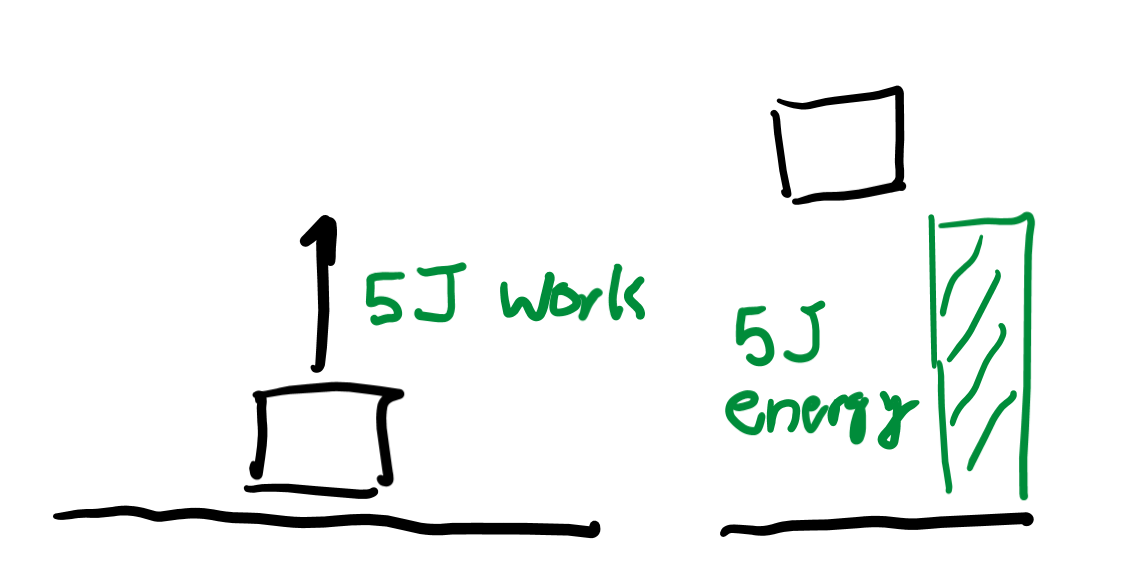 5J work
5J
energy